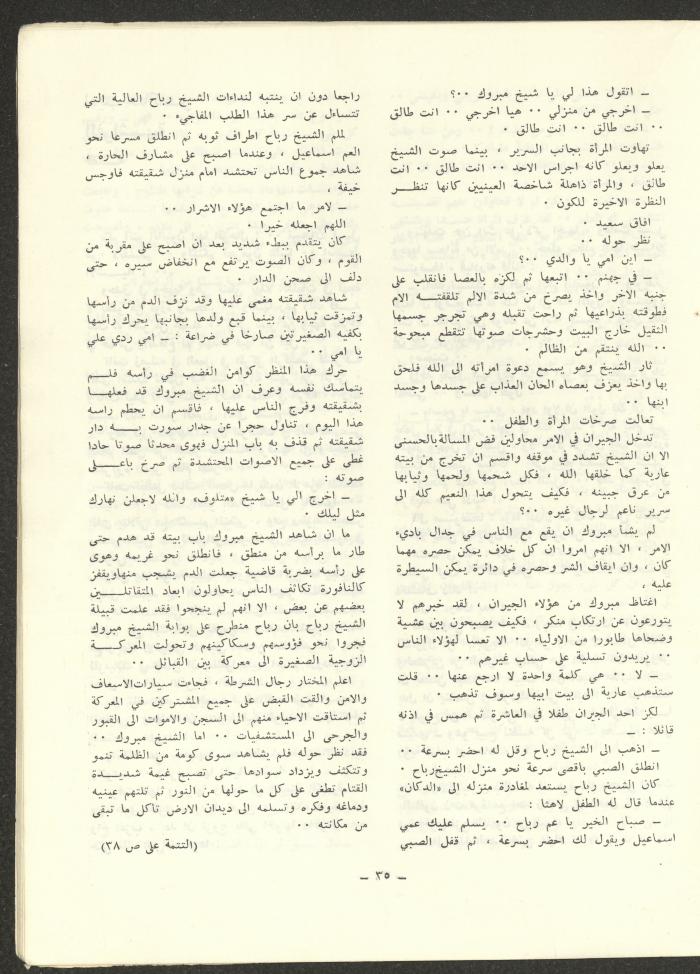 ـ اتقول هذا لي يا شيخ مبروك ٠٠؟
ـ اخرجي من منزلي ٠٠ هيا اخرجي ٠٠ انت طالق
٠٠ انت طالق ٠٠ انت طالق ٠
تهاوت المرأة بجانب السرير ، بينما صوت الشيخ
يعلو ويعلو كانه اجراس الاحد ٠٠ انت طالق ٠٠ انت
طالق ، والمرأة ذاهلة شاخصة العينيين كانها تنظـــر
النظرة الاخيرة للكون ٠
افاق سعيد ٠
نظر حوله ٠٠
ـ اين امي يا والدي ٠٠؟
ـ في جهنم ٠٠ اتبعها ثم لكزه بالعصا فانقلب على
جنبه الاخر واخذ يصرخ من شدة الالم تلقفتــه الام
فطوقته بذراعيها ثم راحت تقبله وهي تجرجر جسمها
الثقيل خارج البيت وحشرجات صوتها تتقطع مبحوحة
٠٠ الله ينتقم من الظالم ٠
ثار الشيخ وهو يسمع دعوة امرأته الى الله فلحق
بها واخذ يعزف بعصاه الحان العذاب على جسدها وجسد
ابنها ٠٠
تعالت صرخات المرأة والطفل ٠٠
تدخل الجيران في الامر محاولين فض المسالةبالحسنى
الا ان الشيخ تشدد في موقفه واقسم ان تخرج من بيته
عارية كما خلقها الله ، فكل شحمها ولحمها وثيابها
من عرق جبينه ، فكيف يتحول هذا النعيم كله الى
سرير ناعم لرجال غيره ٠٠؟
لم يشأ مبروك ان يقع مع الناس في جدال باديء
الامر ، الا انهم امروا ان كل خلاف يمكن حصره مهما
كان ، وان ايقاف الشر وحصره في دائرة يمكن السيطرة
عليه ،
اغتاظ مبروك من هؤلاء الجيران ، لقد خبرهم لا
يتورعون عن ارتكاب منكر ، فكيف يصبحون بين عشية
وضحاها طابورا من الاولياء ٠٠ الا تعسا لهؤلاء الناس
٠٠ يريدون تسلية على حساب غيرهم ٠٠
ـ لا ٠٠ هي كلمة واحدة لا ارجع عنها ٠٠ قلت
ستذهب عارية الى بيت ابيها وسوف تذهب ٠
لكز احد الجيران طفلا في العاشرة ثم همس في اذنه
قائلا : ـ
ـ اذهب الى الشيخ رباح وقل له احضر بسرعة ٠٠
انطلق الصبي باقصى سرعة نحو منزل الشيخرباح ٠
كان الشيخ رباح يستعد لمغادرة منزله الى «الدكان»
عندما قال له الطفل لاهثا :
ـ صباح الخير يا عم رباح ٠٠ يسلم عليك عمي
اسماعيل ويقول لك احضر بسرعة ، ثم قفل الصبي
راجعا دون ان ينتبه لنداءات الشيخ رباح العالية التي
تتساءل عن سر هذا الطلب المفاجيء ٠
لملم الشيخ رباح اطراف ثوبه ثم انطلق مسرعا نحو
العم اسماعيل ، وعندما اصبح على مشارف الحارة ،
شاهد جموع الناس تحتشد امام منزل شقيقته فاوجس
خيفة ،
ـ لامر ما اجتمع هؤلاء الاشرار ٠٠
اللهم اجعله خيرا ٠
كان يتقدم ببطء شديد بعد ان اصبح على مقربة من
القوم ، وكان الصوت يرتفع مع انخفاض سيره ، حتى
دلف الى صحن الدار ٠
شاهد شقيقته مغمى عليها وقد نزف الدم من رأسها
وتمزقت ثيابها ، بينما قبع ولدها بجانبها يحرك رأسها
بكفيه الصغيرتين صارخا في ضراعة : ـ امي ردي علي
يا امي ٠٠
حرك هذا المنظر كوامن الغضب في رأسه فلـــم
يتماسك نفسه وعرف ان الشيخ مبروك قد فعلهـــا
بشقيقته وفرج الناس عليها ، فاقسم ان يحطم راسه
هذا اليوم ، تناول حجرا عن جدار سورت بـــه دار
شقيقته ثم قذف به باب المنزل فهوى محدثا صوتا حادا
غطى على جميع الاصوات المحتشدة ثم صرخ باعـــلى
صوته :
ـ اخرج الي يا شيخ «متلوف» والله لاجعلن نهارك
مثل ليلك ٠
ما ان شاهد الشيخ مبروك باب بيته قد هدم حتى
طار ما برأسه من منطق ، فانطلق نحو غريمه وهوى
على رأسه بضربة قاضية جعلت الدم يشجب منهاويقفز
كالنافورة تكاثف الناس يحاولون ابعاد المتقاتلـــين
بعضهم عن بعض ، الا انهم لم ينجحوا فقد علمت قبيلة
الشيخ رباح بان رباح منطرح على بوابة الشيخ مبروك
فجروا نحو فؤوسهم وسكاكينهم وتحولت المعركـــة
الزوجية الصغيرة الى معركة بين القبائل ٠٠
اعلم المختار رجال الشرطة ، فجاءت سياراتالاسعاف
والامن والقت القبض على جميع المشتركين في المعركة
ثم استاقت الاحياء منهم الى السجن والاموات الى القبور
والجرحى الى المستشفيات ٠٠ اما الشيخ مبروك ٠٠
فقد نظر حوله فلم يشاهد سوى كومة من الظلمة تنمو
وتتكثف ويزداد سوادها حتى تصبح غيمة شديـــدة
القتام تطغى على كل ما حولها من النور ثم تلتهم عينيه
ودماغه وفكره وتسلمه الى ديدان الارض تاكل ما تبقى
من مكانته ٠٠
(التتمة على ص ٣٨)
ـ ٣٥ ـ